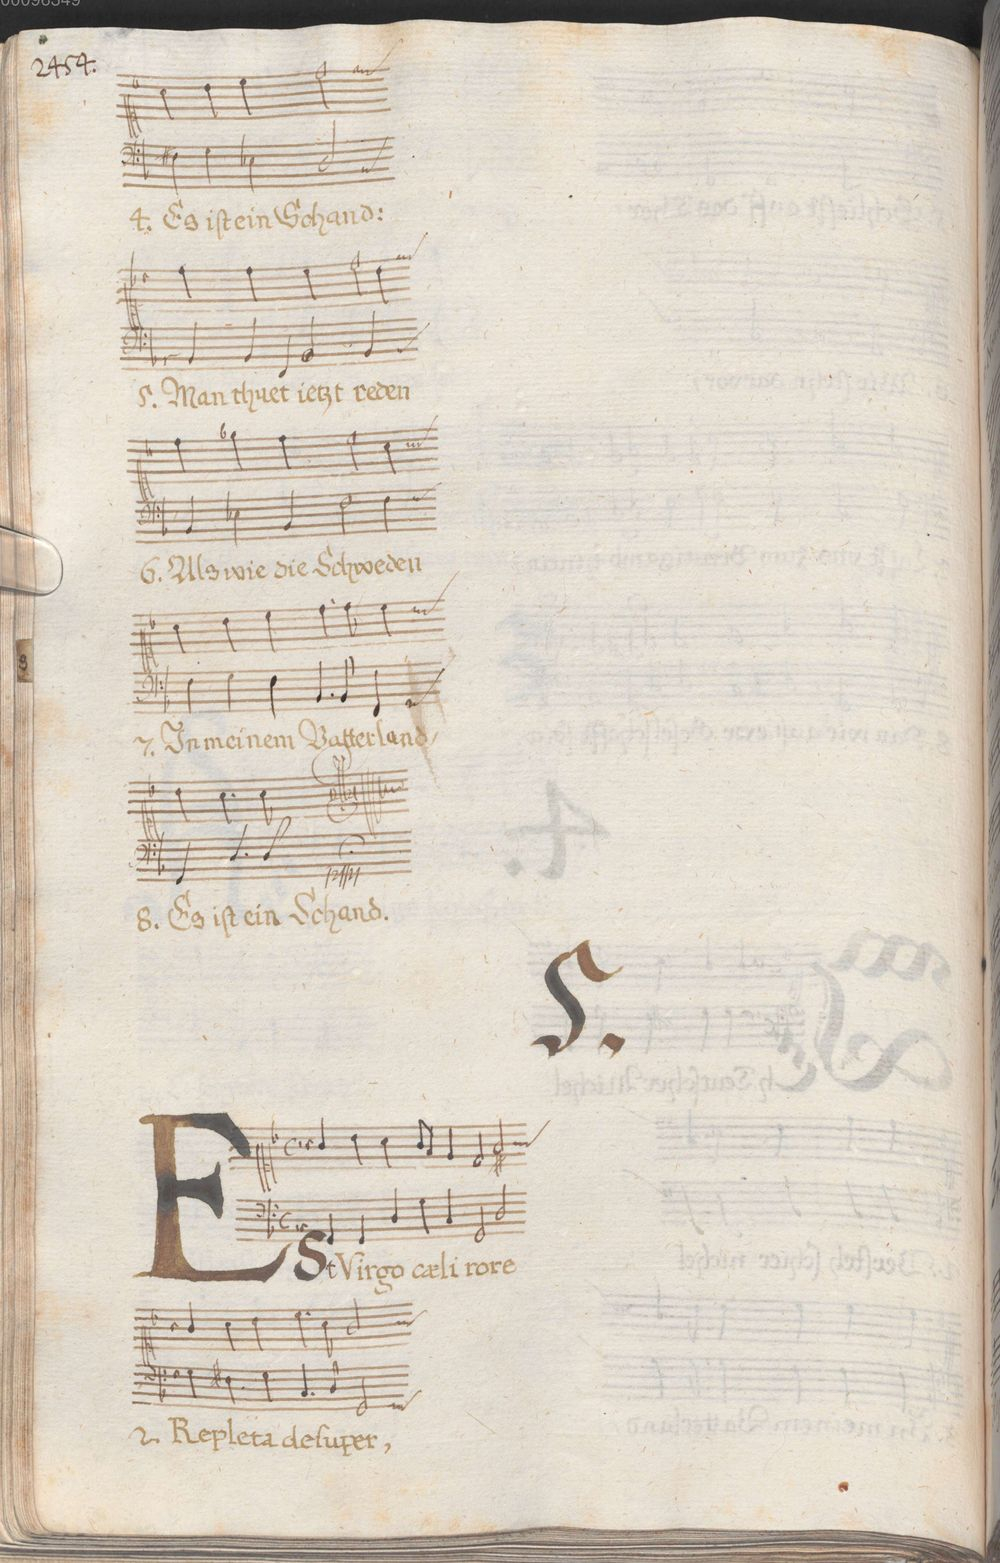 00098349
2454.
4. Es ist ein Schand:
5. Man thuet ietzt reden
6. Als wie die Schweden
7. In meinem Vatterland,
8. Es ist ein Schand.
5.
Est Virgo cæli rore
2. Repleta desuper,